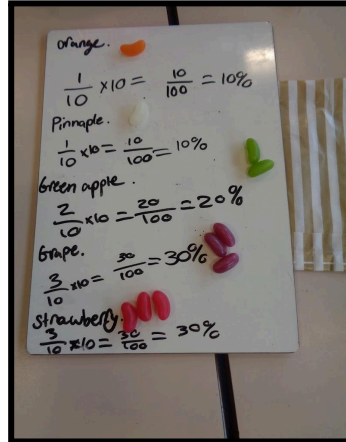 Orange.
1/10 ×10 = 10/100 = 10%
Pinnaple.
1/10 ×10 = 10/100 = 10%
Green apple.
2/10 ×10 = 20/100 = 20%
Grape.
3/10 ×10 = 30/100 = 30%
Strawberry.
3/10 ×10 = 30/100 = 30%